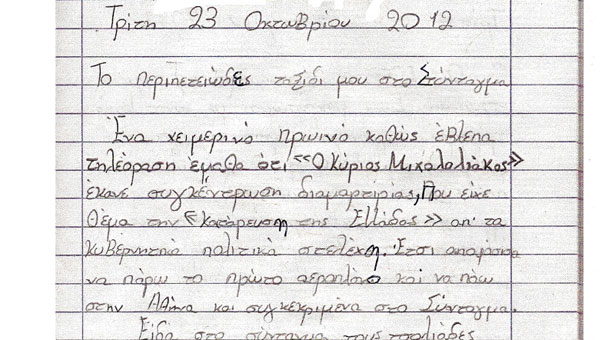 Τρίτη 23 Οκτωβρίου 2012
Το περιπετειώδες ταξίδι μου στο Σύνταγμα
Ένα χειμερινό πρωινό καθώς έβλεπα
τηλεόραση έμαθα ότι «Ο Κύριος Μιχαλολιάκος»
έκανε συγκέντρωση διαμαρτιρίας, που είχε
θέμα την «κατάρευση της Ελλάδος» απ' τα
κυβερνητικά πολιτικά στελέχη. Έτσι αποφάσισα
να πάρω το πρώτο αεροπλάνο και να πάω
στην Αθήνα και συγκεκριμένα στο Σύνταγμα.
Είδα στο σύνταγμα τους τσολιάδες